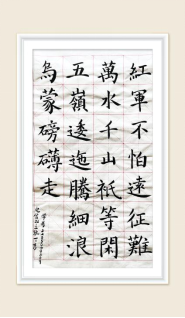 紅軍不怕遠征難
萬水千山衹等閑
五嶺逶迤騰細浪
烏蒙磅礴走